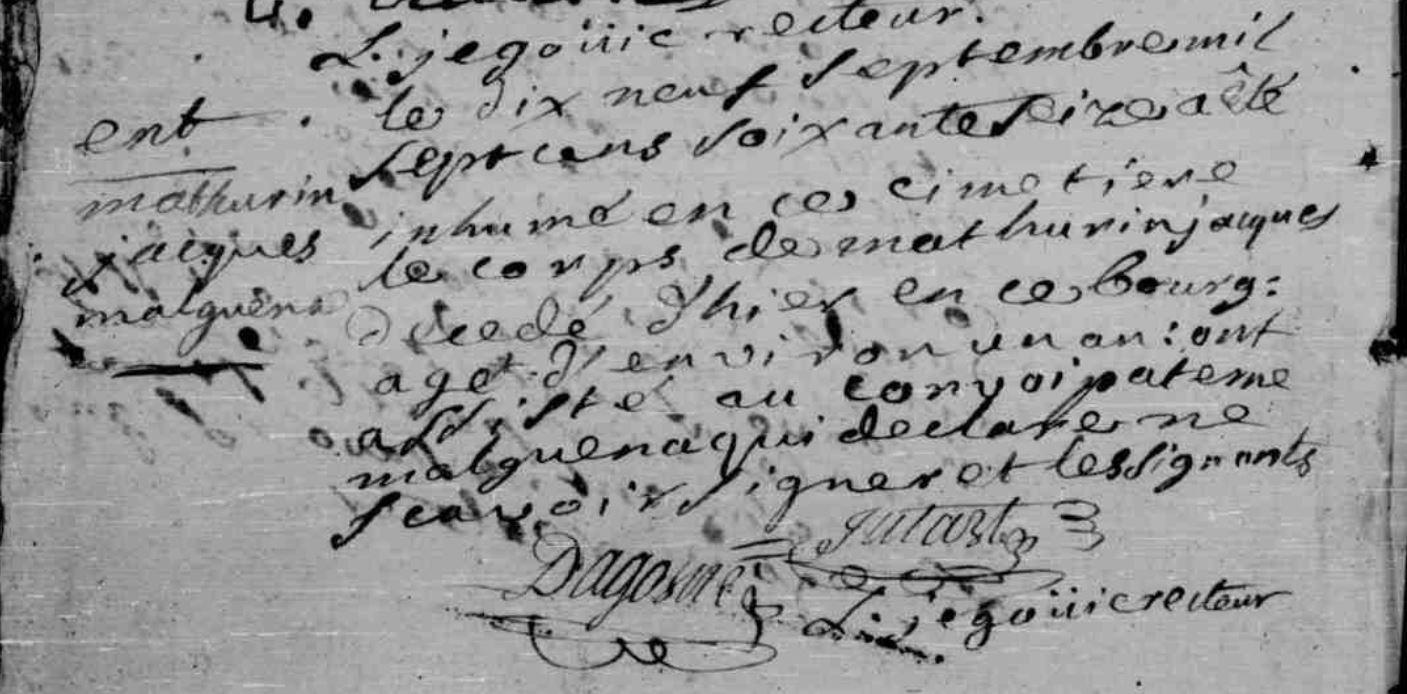 L. jegoüic recteur.
ent
mathurin
jacques
malguéna
le dix neuf septembre mil
sept cens soixante seize a êté
inhumé en ce cimetiere
le corps de mathurin jacques
décedé d'hier en ce bourg:
agé d'environ un an: ont
assisté au convoi paterne
malguena qui declare ne
scavoir signer et les signants
Jutart
Dagorne
L. jegoüic recteur